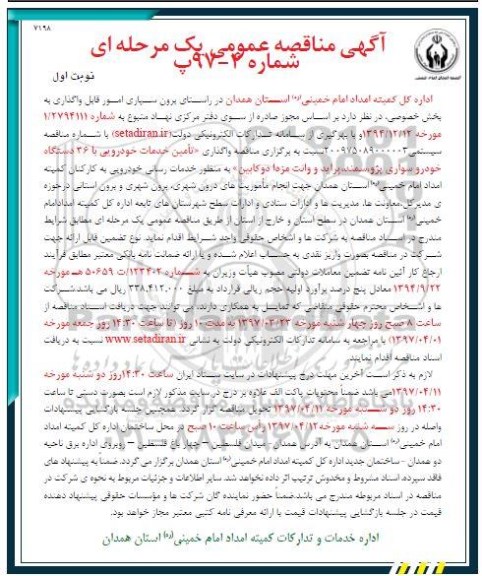 ۷۱۹۸
آگهی مناقصه عمومی یک مرحله ای
شماره ۲-۹۷پ
نوبت اول
اداره کل کمیته امداد امام خمینی(ره) استان همدان در راستای برون سپاری امور قابل واگذاری به
بخش خصوصی، در نظر دارد بر اساس مجوز صادره از سوی دفتر مرکزی نهاد متبوع به شماره ۱/۲۷۹۴۱۱۱
مورخه ۱۳۹۴/۱۲/۱۲و با بهره گیری از سامانه تدارکات الکترونیکی دولت(setadiran.ir) با شماره مناقصه
سیستمی۲۰۰۹۷۵۰۸۹۰۰۰۰۰۳نسبت به برگزاری مناقصه واگذاری «تأمین خدمات خودرویی با ۳۶ دستگاه
خودرو سواری پژو،سمند،پراید و وانت مزدا دوکابین» به منظور خدمات رسانی خودرویی به کارکنان کمیته
امداد امام خمینی(ره) استان همدان جهت انجام مأموریت های درون شهری، برون شهری و برون استانی درحوزه
ی مدیرکل،معاونت ها، مدیریت ها و ادارات ستادی و ادارات سطح شهرستان های تابعه اداره کل کمیته امدادامام
خمینی(ره) استان همدان در سطح استان و خارج از استان از طریق مناقصه عمومی یک مرحله ای مطابق شرایط
مندرج در اسناد مناقصه به شرکت ها و اشخاص حقوقی واجد شرایط اقدام نماید. نوع تضمین قابل ارائه جهت
شرکت در مناقصه بصورت واریز نقدی به حساب اعلام شده و یا ارائه ضمانت نامه بانکی معتبر مطابق فرآیند
ارجاع کار آئین نامه تضمین معاملات دولتی مصوب هیأت وزیران به شماره ۱۲۳۴۰۲/ت ۵۰۶۵۹ هـ مورخه
۱۳۹۴/۹/۲۲ معادل پنج درصد برآورد اولیه حجم ریالی قرارداد به مبلغ ۳۳۸,۴۱۲,۰۰۰ ریال می باشد.شرکت
ها و اشخاص محترم حقوقی متقاضی که تمایل به همکاری دارند، می توانند جهت دریافت اسناد مناقصه از
ساعت ۸ صبح روز چهار شنبه مورخه ۱۳۹۷/۰۳/۲۳ به مدت ۱۰ روز (تا ساعت ۱۴:۳۰ روز جمعه مورخه
۱۳۹۷/۰۴/۰۱) با مراجعه به سامانه تدارکات الکترونیکی دولت به نشانی www.setadiran.ir نسبت به دریافت
اسناد مناقصه اقدام نمایند.
لازم به ذکر است آخرین مهلت درج پیشنهادات در سایت ستاد ایران ساعت ۱۴:۳۰روز دو شنبه مورخه
۱۳۹۷/۰۴/۱۱می باشد ضمناً محتویات پاکت الف علاوه بر درج در سایت مذکور لازم است بصورت دستی تا ساعت
۱۴:۳۰ روز دو شنبه مورخه ۱۳۹۷/۰۴/۱۱ تحویل مناقصه گزار گردد. همچنین جلسه بازگشایی پیشنهادات
واصله در روز سه شنبه مورخه ۱۳۹۷/۰۴/۱۲ رأس ساعت ۱۰ صبح در محل ساختمان اداره کل کمیته امداد
امام خمینی(ره) استان همدان به آدرس همدان - میدان فلسطین - چهار باغ فلسطین - روبروی اداره برق ناحیه
دو همدان - ساختمان جدید اداره کل کمیته امداد امام خمینی(ره) استان همدان برگزار می گردد. ضمناً به پیشنهاد های
فاقد سپرده، اسناد مشروط و مخدوش ترتیب اثر داده نخواهد شد. سایر اطلاعات و جزئیات مربوط به نحوه ی شرکت در
مناقصه در اسناد مربوطه مندرج می باشد.ضمناً حضور نماینده گان شرکت ها و مؤسسات حقوقی پیشنهاد دهنده
قیمت در جلسه بازگشایی پیشنهادات قیمت با ارائه معرفی نامه کتبی معتبر مجاز خواهد بود.
اداره خدمات و تدارکات کمیته امداد امام خمینی(ره) استان همدان